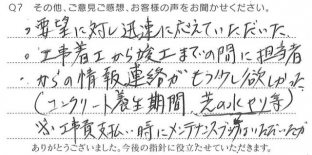 Q7 その他、ご意見ご感想、お客様の声をお聞かせください。
○要望に対し迅速に応えていただいた。
○工事着工から竣工までの間に担当者
からの情報連絡がもう少し欲しかった
(コンクリート養生期間、芝の水やり等)
※工事費支払い時にメンテナンスブックはいただいたが
ありがとうございました。今後の指針に役立たせていただきます。